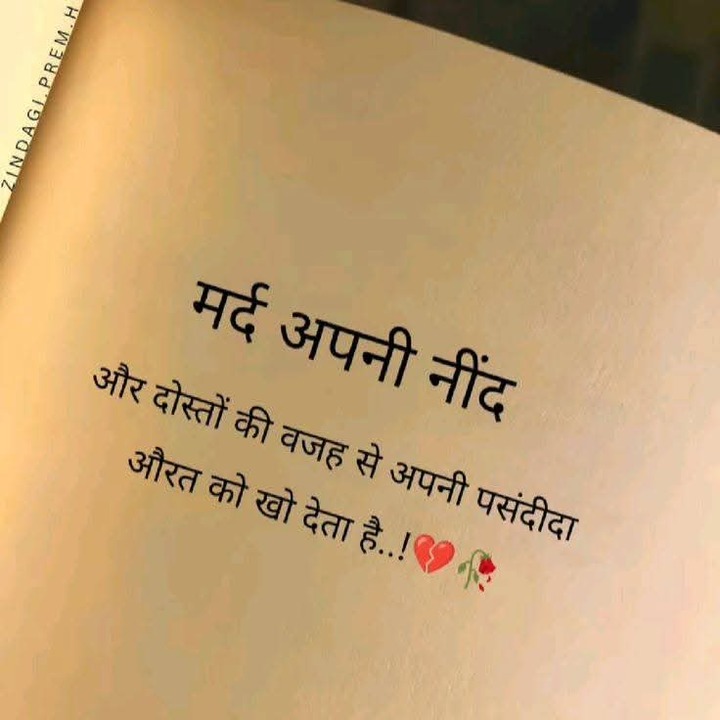 ZINDAGI.PREM.H
मर्द अपनी नींद
और दोस्तों की वजह से अपनी पसंदीदा
औरत को खो देता है..!💔🥀